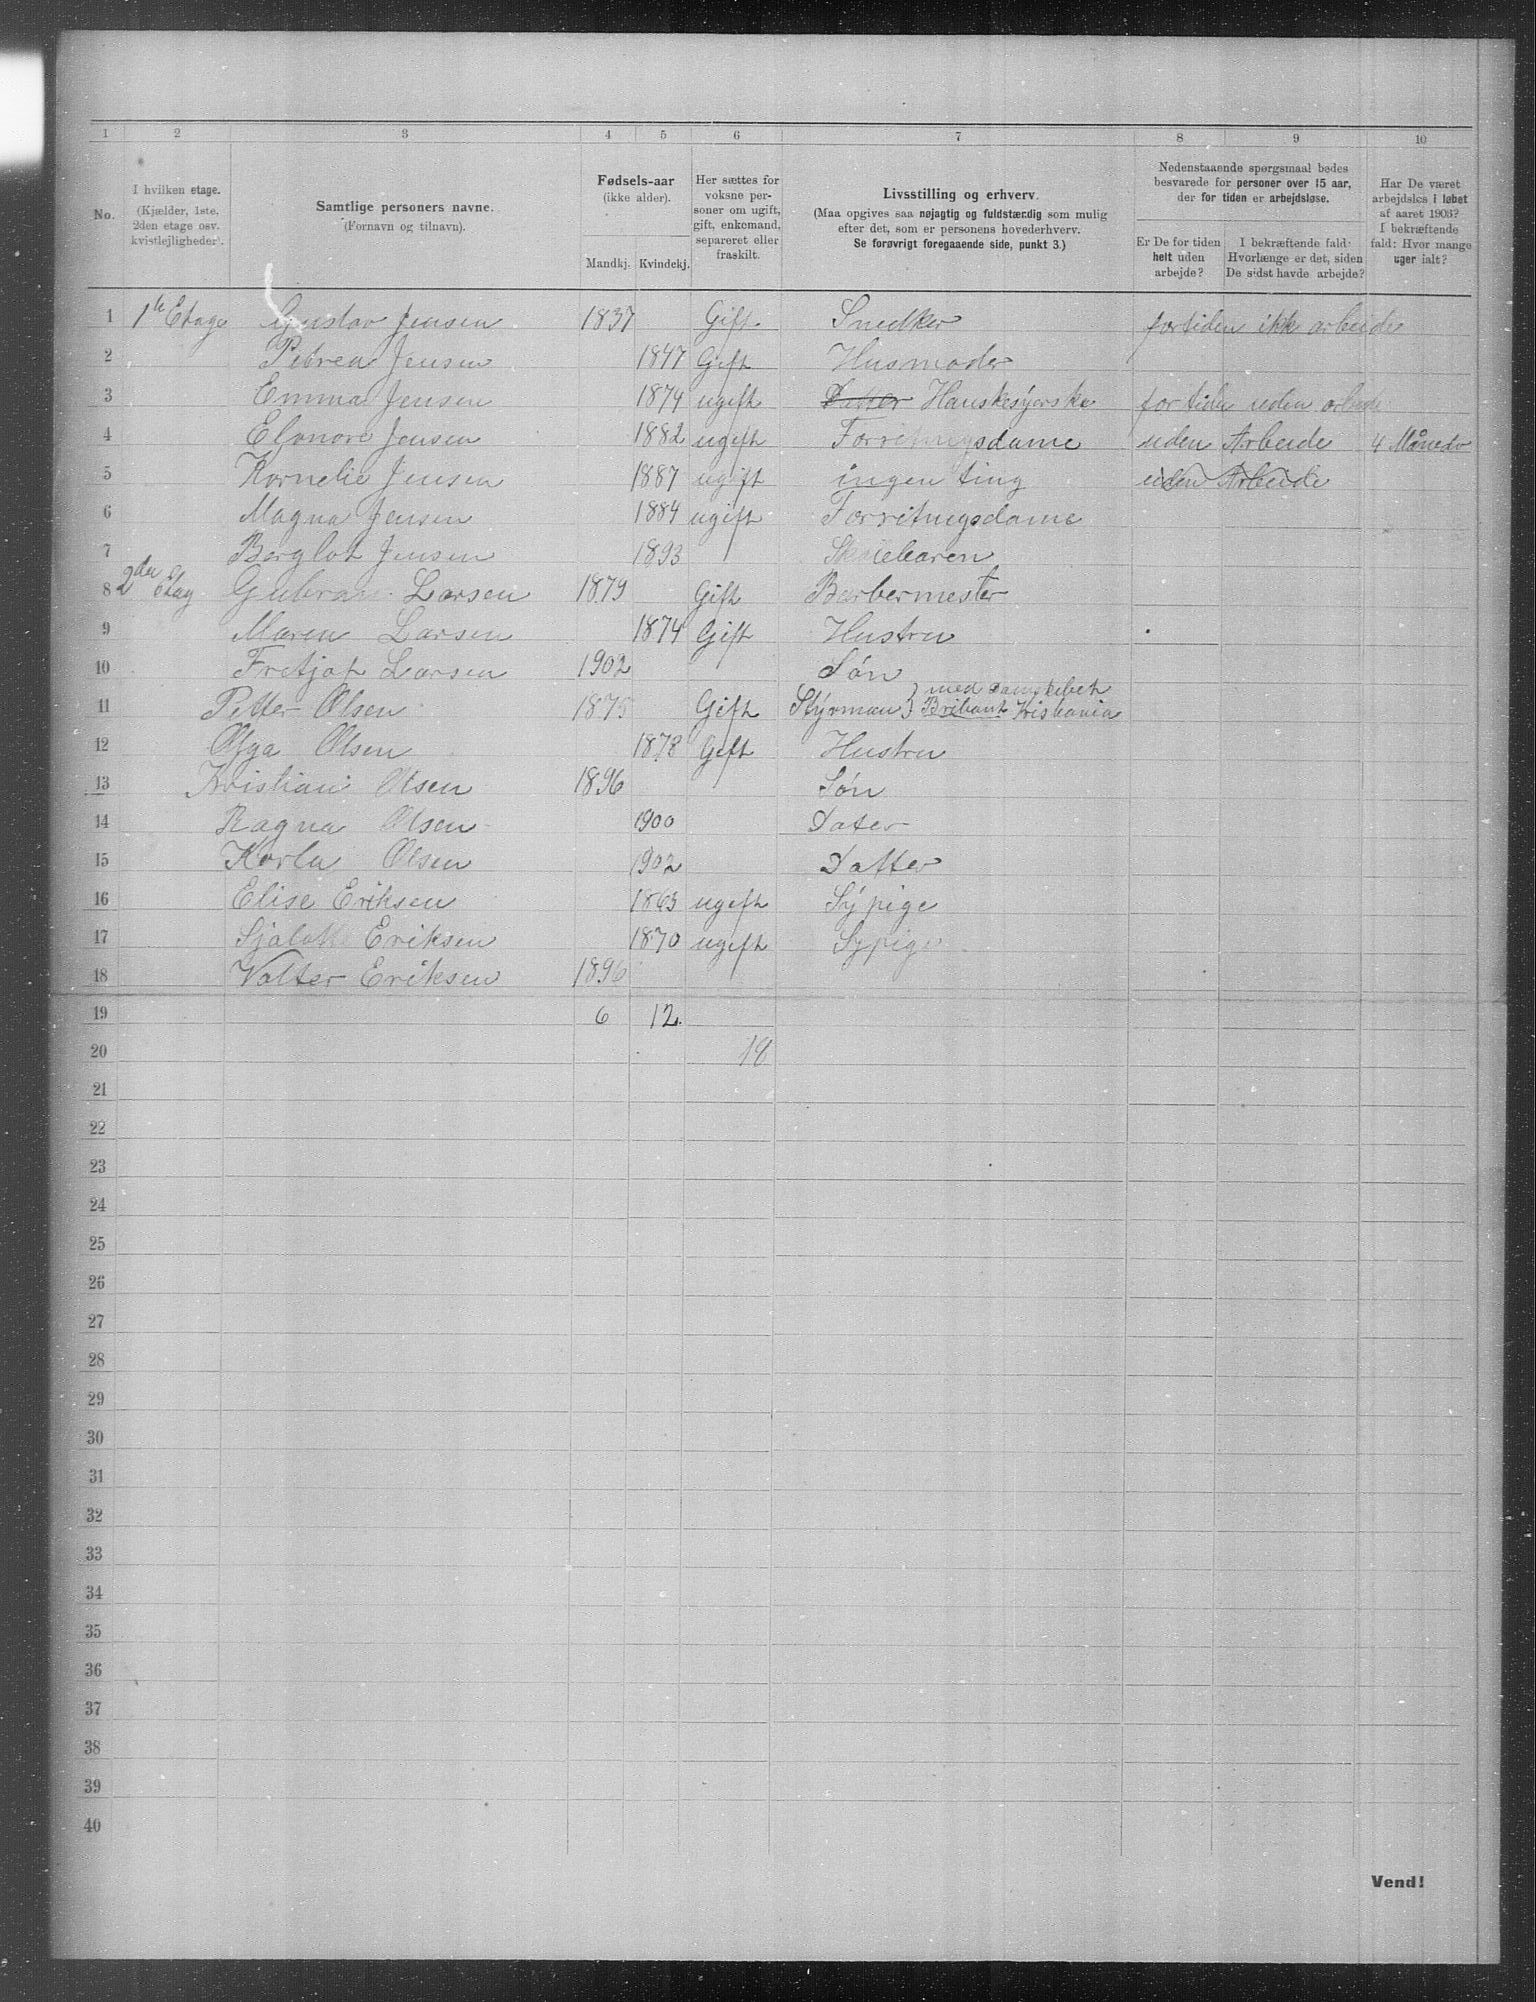 1 2 3 4 5 6 7 8 9 10
No.
I hvilken etage.
(Kjælder, 1ste,
2den etage osv.
kvistlejligheder).
Samtlige personers navne.
(Fornavn og tilnavn).
Fødsels-aar
(ikke alder).
Mandkj. Kvindekj.
Her sættes for
voksne per-
soner om ugift,
gift, enkemand,
separeret eller
fraskilt.
Livsstilling og erhverv.
(Maa opgives saa nøjagtig og fuldstændig som mulig
efter det, som er personens hovederhverv.
Se forøvrigt foregaaende side, punkt 3.)
Nedenstaaende spørgsmaal bedes
besvarede for personer over 15 aar,
der for tiden er arbejdsløse.
Er De for tiden
helt uden
arbejde?
I bekræftende fald:
Hvorlænge er det, siden
De sidst havde arbejde?
Har De været
arbejdsløs i løbet
af aaret 1903?
I bekræftende
fald: Hvor mange
uger ialt?
1 1ste Etage Gustav Jensen 1837 Gift Snedker for tiden ikk arbeide
2 Petrea Jensen 1847 Gift Husmoder
3 Emma Jensen 1874 ugift Datter Hanskesyerske for tiden uden arbeide
4 Elonore Jensen 1882 ugift Forretnigsdame uden Arbeide 4 Måneder
5 Kornelie Jensen 1887 ugift ingen ting uden Arbeide
6 Magna Jensen 1884 ugift Forretnigsdame
7 Berglot Jensen 1893 Skolebaren
8 2den Etag Gubran Larsen 1879 Gift Barbermester
9 Maren Larsen 1874 Gift Hustru
10 Fretjof Larsen 1902 Søn
11 Petter Olsen 1875 Gift Styrman } med Damskibet Briliant Kristiania
12 Olga Olsen 1878 Gift Hustru
13 Kristian Olsen 1896 Søn
14 Ragna Olsen 1900 Dater
15 Karla Olsen 1902 Datter
16 Elise Eriksen 1863 ugift Sypige
17 Sjalotte Eriksen 1870 ugift Sypige
18 Valter Eriksen 1896
19 6 12.
20 18
21
22
23
24
25
26
27
28
29
30
31
32
33
34
35
36
37
38
39
40
Vend!